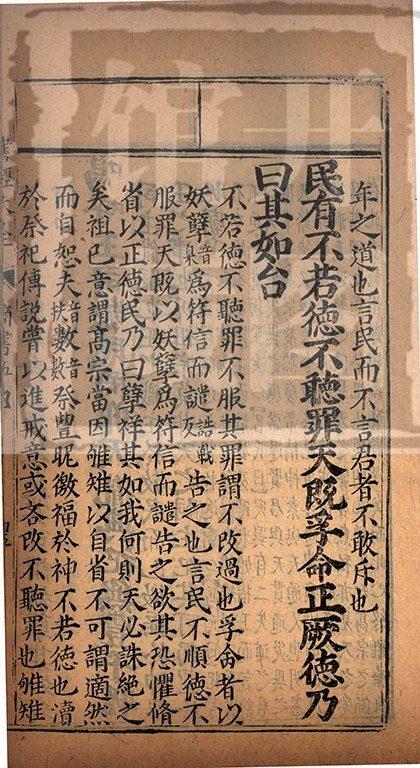 年之道也言民而不言君者不敢斥也
民有不若德不聽罪天既孚命正厥德乃
曰其如台
不若德不聽罪不服其罪謂不改過也孚命者以
妖孽音臬爲符信而譴詰戰反告之也言民不順德不
服罪天既以妖孽爲符信而譴告之欲其恐懼脩
省以正德民乃曰孽祥其如我何則天必誅絕之
矣祖已意謂高宗當因雊雉以自省不可謂適然
而自恕夫音扶數音數祭豐昵徼福於神不若德也瀆
於祭祀傅說嘗以進戒意或吝改不聽罪也雊雉
書經大全